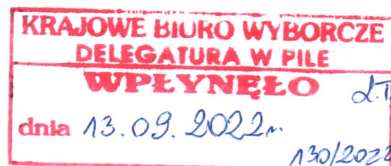 KRAJOWE BIURO WYBORCZE
DELEGATURA W PILE
WPŁYNĘŁO
dnia 13.09.2022r.
130/2022